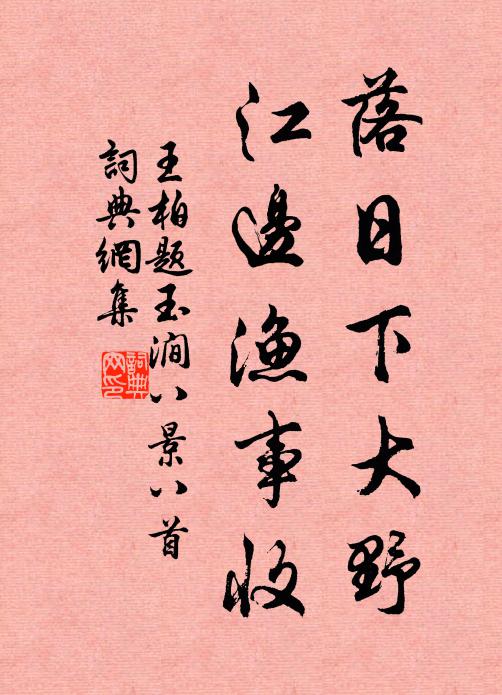 落日下大野
江邊漁事收
王柏題玉澗八景八首
詞典網集
詞典網印